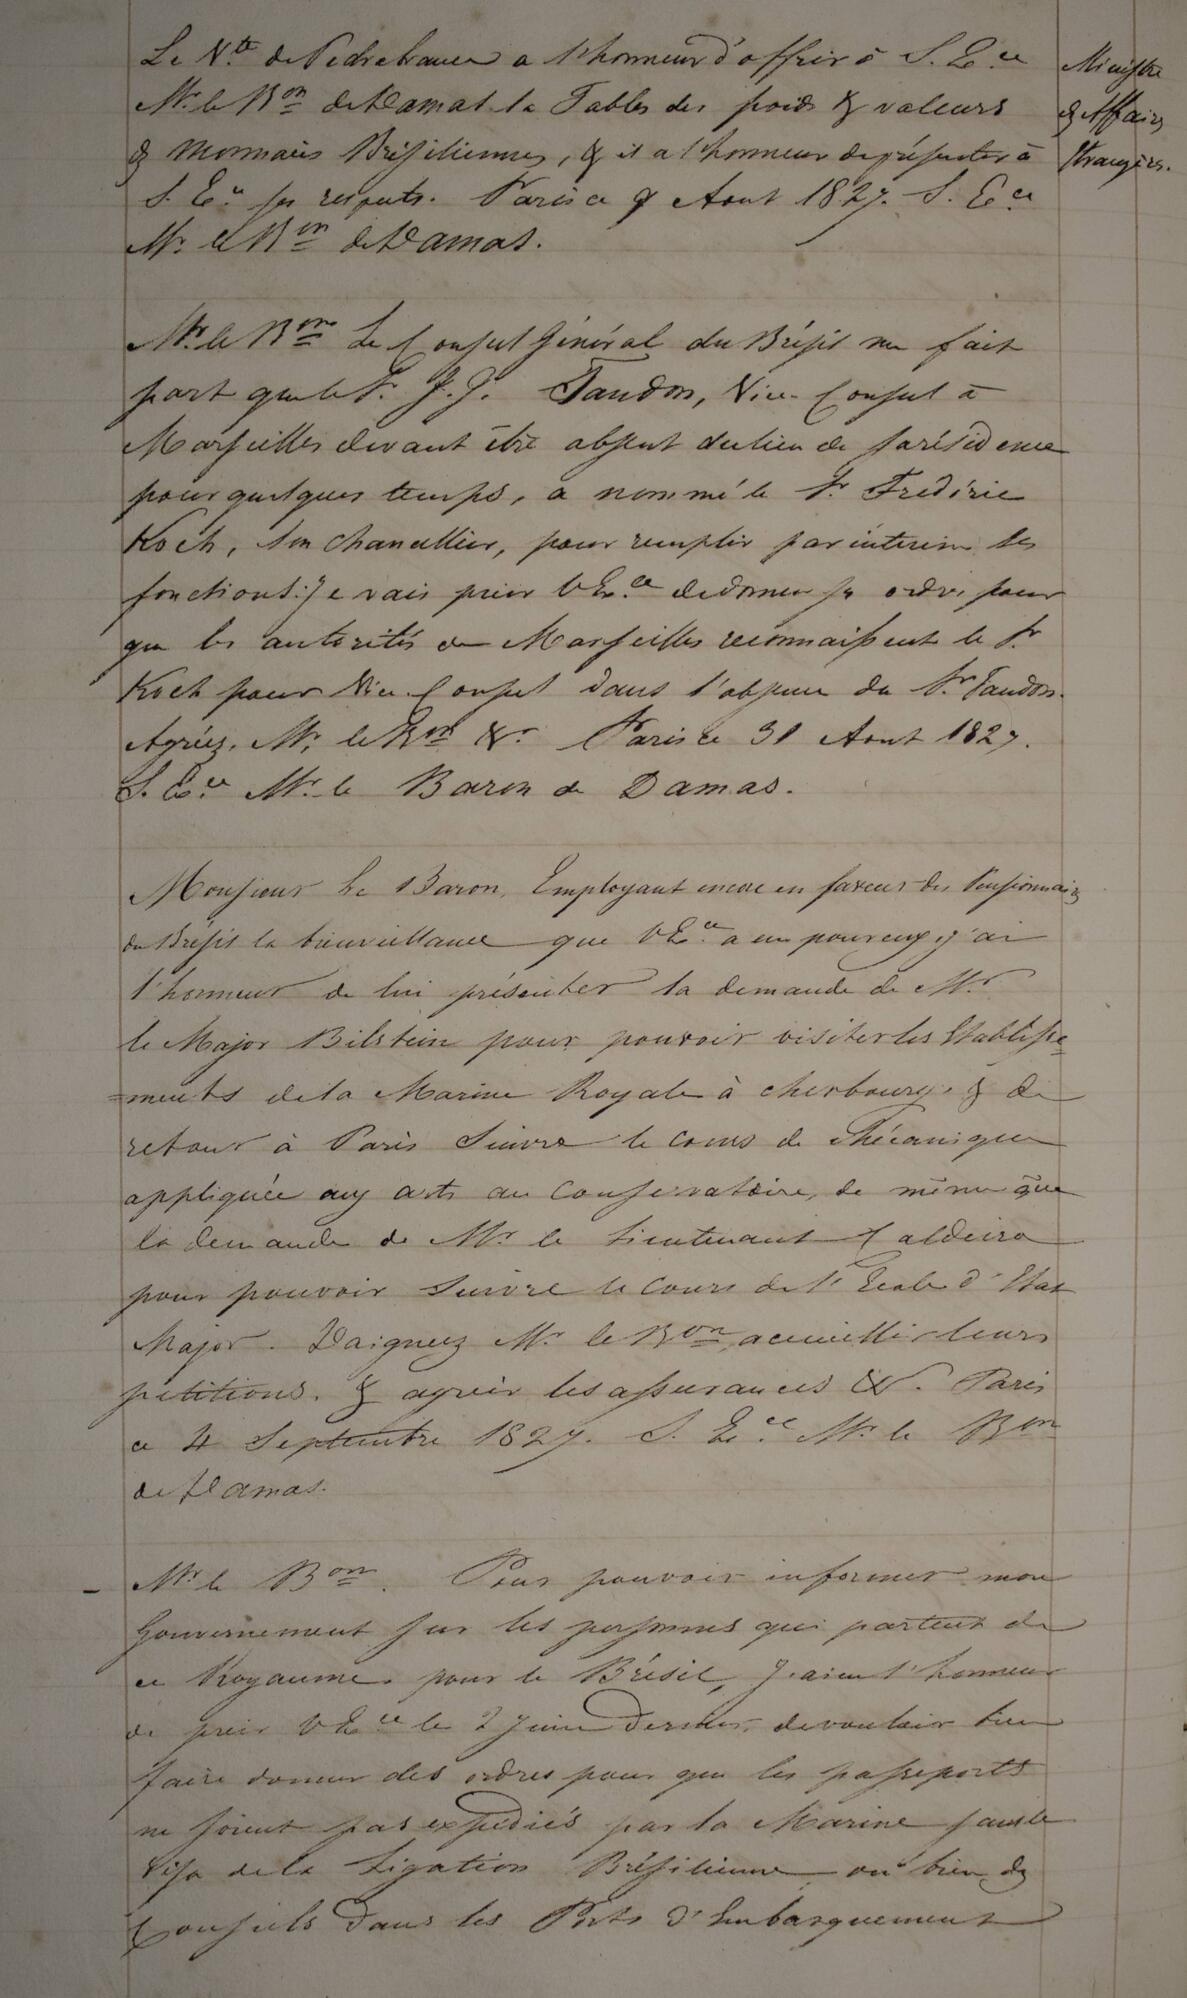 Le Vte de Pedra branca a l'honneur d'offrir à S. Ece
Mr. le Bon de Damas la Table des poids & valeurs
des Monnaies Brésiliennes, & il a l'honneur de présenter à
S. Ece ses respects. Paris ce 9 Aout 1827. S. Ece
Mr. le Bon de Damas.
Ministre
des Affaires
Etrangères.
Mr. le Bon Le Consul Général du Brésil me fait
part que le Sr. J. J. Taudon, Vice-Consul à
Marseilles devant être absent du lieu de sa résidence
pour quelques temps, a nommé le Sr Frederic
Koch, son chancellier, pour remplir par interim ses
fonctions: Je vais prier V Ece de donner ses ordres pour
que les autorités de Marseilles reconnaissent le Sr
Koch pour Vice-Consul dans l'absence du Sr Taudon.
Agréez, Mr. le Bon &r Paris ce 31 Aout 1827.
S. Ece Mr. le Baron de Damas.
Monsieur le Baron, Employant encore en faveur des Pensionnaires
du Brésil la bienveillance que V Ece a eu pour eux, j'ai
l'honneur de lui présenter la demande de Mr
le Major Bilstein pour pouvoir visiter les Etablisse=
=ments de la Marine Royale à Cherbourg, & de
retour à Paris suivre le cours de Mécanique
appliquée aux arts au Conservatoire, de même que
la demande de Mr le Lieutenant Caldeira
pour pouvoir suivre le cours de l'Ecole d'Etat
Major. Daignez Mr. le Bon, accueillir leurs
petitions. & agréer les assurances &r. Paris
ce 4 Septembre 1827. S. Ece Mr. le Bon
de Damas.
Mr le Bon. Pour pouvoir informer mon
Gouvernement sur les personnes qui partent de
ce Royaume pour le Brésil, j'ai eu l'honneur
de prier V Ece le 2 juin dernier de vouloir bien
faire donner des ordres pour que les passeports
ne soient pas expédiés par la Marine sans le
Visa de la Légation Brésilienne ou bien des
Consuls dans les Ports d'Embarquement